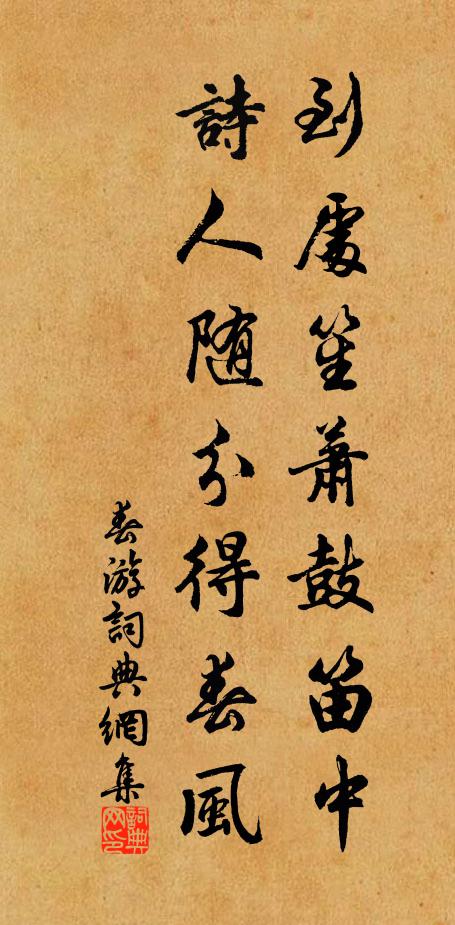 到處笙蕭鼓笛中
詩人随分得春風
春游詞典網集
詞典网印